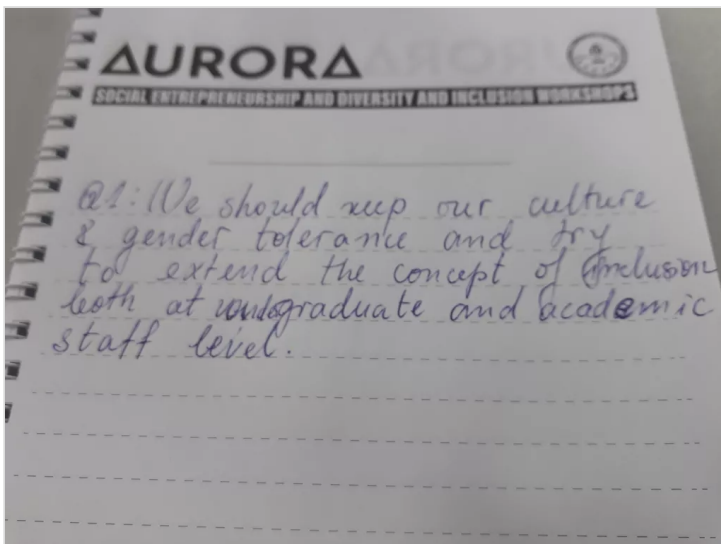 AURORA
SOCIAL ENTREPRENEURSHIP AND DIVERSITY AND INCLUSION WORKSHOPS
Q1: We should keep our culture
& gender tolerance and try
to extend the concept of inclusion
both at undergraduate and academic
staff level.